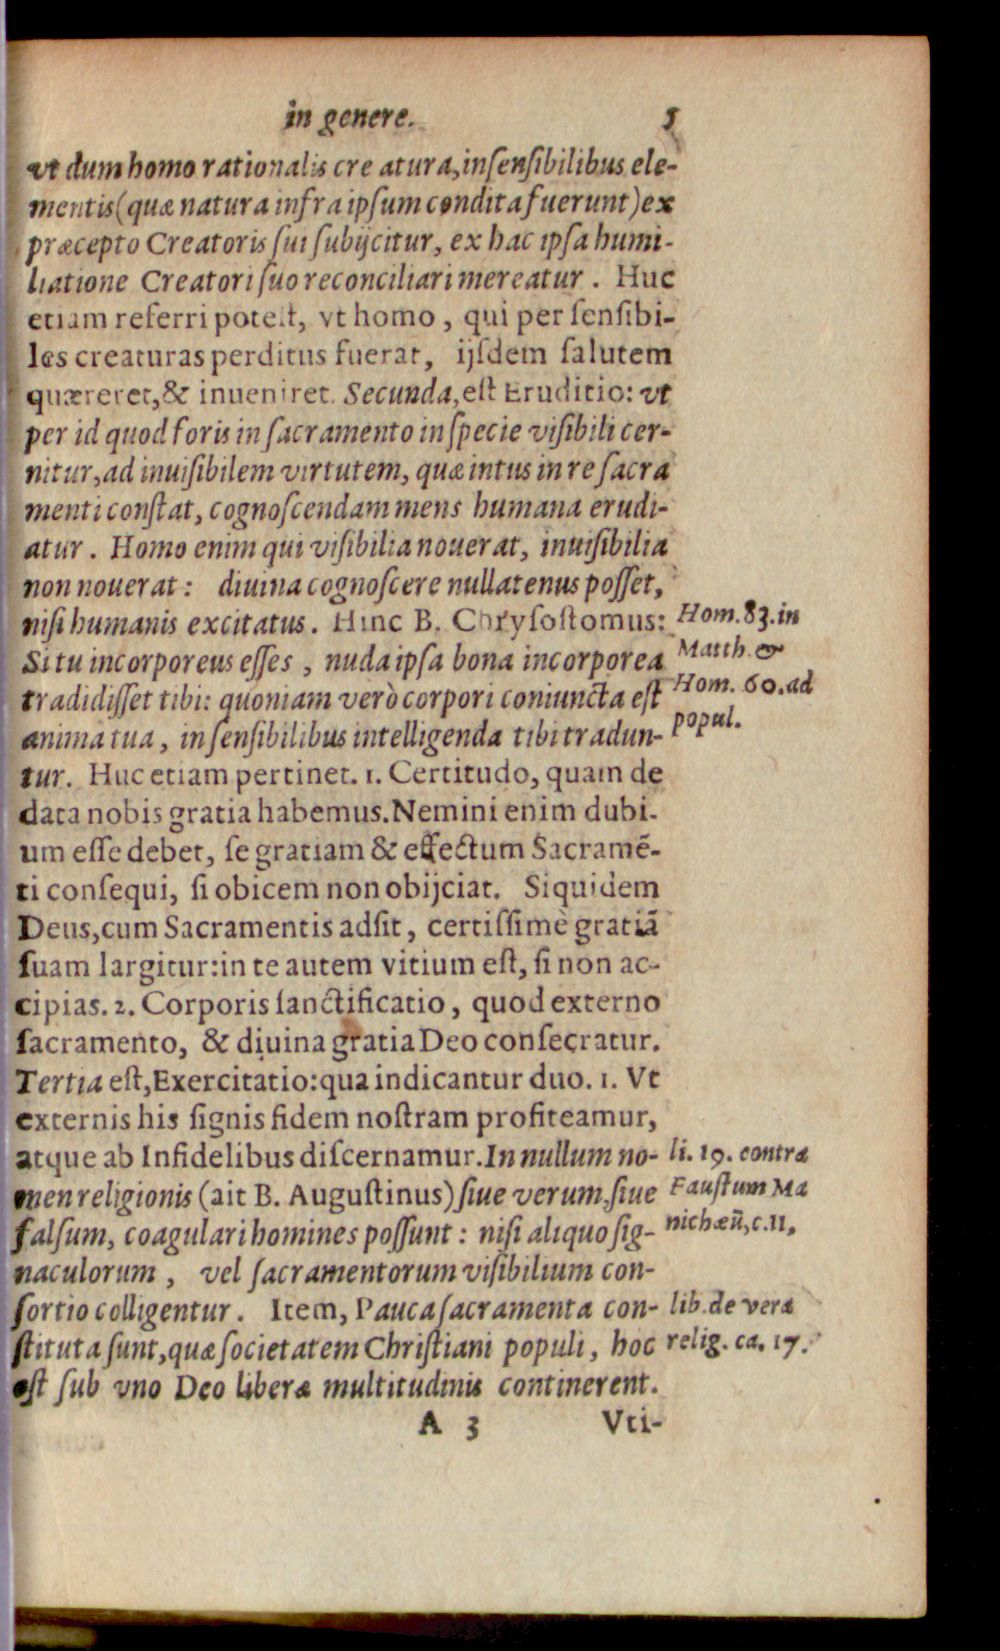 in genere. 5
vt dum homo rationalis cre atura, insensibilibus ele-
mentis (quæ natura infra ipsum condita fuerunt) ex
præcepto Creatoris sui subijcitur, ex hac ipsa humi-
liatione Creatori suo reconciliari mereatur. Huc
etiam referri potest, vt homo, qui per sensibi-
les creaturas perditus fuerat, ijsdem salutem
quæreret, & inueniret. Secunda, est Eruditio: vt
per id quod foris in sacramento in specie visibili cer-
nitur, ad inuisibilem virtutem, quæ intus in re sacra
menti constat, cognoscendam mens humana erudi-
atur. Homo enim qui visibilia nouerat, inuisibilia
non nouerat: diuina cognoscere nullatenus posset,
nisi humanis excitatus. Hinc B. Chrysostomus:
Si tu incorporeus esses, nuda ipsa bona incorporea
tradidisset tibi: quoniam verò corpori coniuncta est
anima tua, in sensibilibus intelligenda tibi tradun-
tur. Huc etiam pertinet. 1. Certitudo, quam de
data nobis gratia habemus. Nemini enim dubi-
um esse debet, se gratiam & effectum Sacramẽ-
ti consequi, si obicem non obijciat. Siquidem
Deus, cum Sacramentis adsit, certissimè gratiã
suam largitur: in te autem vitium est, si non ac-
cipias. 2. Corporis sanctificatio, quod externo
sacramento, & diuina gratia Deo consecratur.
Tertia est, Exercitatio: qua indicantur duo. 1. Vt
externis his signis fidem nostram profiteamur,
atque ab Infidelibus discernamur. In nullum no-
men religionis (ait B. Augustinus) siue verum, siue
falsum, coagulari homines possunt: nisi aliquo sig-
naculorum, vel sacramentorum visibilium con-
sortio colligentur. Item, Pauca sacramenta con-
stituta sunt, quæ societatem Christiani populi, hoc
est sub vno Deo liberæ multitudinis continerent.
A 3 Vti-
Hom. 83. in
Matth. &
Hom. 60. ad
popul.
li. 19. contra
Faustum Ma
nichæũ, c. 11,
lib. de vera
relig. ca. 17.